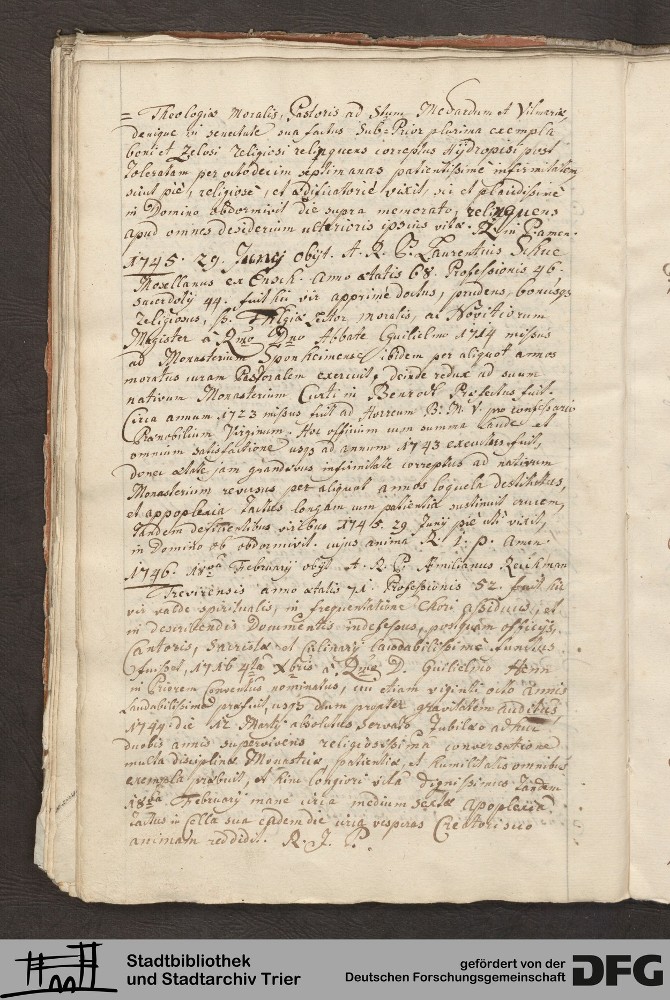 = Theologiæ Moralis, Pastoris ad Stum Medardum et Vilmariæ,
denique in senectute sua factus Sub-Prior plurima exempla
boni et zelosi religiosi relinquens correptus Hÿdropesi post
toleratam per octodecim septimanas patientissime infirmitatem
sicut pie, religiose, et ædificatorie vixit, sic et placidissime
in Domino obdormivit die supra memorato, relinquens
apud omnes desiderium ulterioris ipsius vitæ. R. in P. amen.
1745. 29. Junij obijt A. R. P. Laurentius
Mosellanus ex Ensch. anno ætatis 68. Professionis 46.
sacerdotij 44. fuit hic vir apprime doctus, prudens, bonusq3
religiosus, Lector moralis, ac Novitiorum
Magister a Rmo Dno Abbate Guilielmo 1714 missus
ad Monasterium Sponheimense ibidem per aliquot annos
moratus curam Pastoralem exercuit, deinde redux ad suum
nativum Monasterium Curti in Benrodt Præfectus fuit.
Circa annum 1723 missus fuit ad Horreum B. M. V. pro confessario
Prænobilium Virginum. Hoc officium cum summa laude et
omnium satisfactione usq3 ad annum 1743 executus fuit,
donec ætate jam grandævus infirmitate correptus ad nativum
Monasterium reversus per aliquot annos loquela destitutus,
et appoplexia tactus longam cum patientia sustinuit crucem,
tandem deficientibus viribus 1745. 29 Junij pie uti vixit,
in Domino ob obdormivit. cujus anima R. i. p. Amen.
1746. 18va Februarij obijt A. R. P. Æmilianus Reickman
Trevirensis anno ætatis 71. Professionis 52. fuit hic
vir valde spiritualis, in frequentatione Chori assiduus, et
in describendis Documentis indefessus, postquam officijs,
Cantoris, Sacristæ et Culinarij laudabilissime functus
fuisset, 1716 4ta Xbris a Rmo D. Guilielmo Henn
in Priorem Conventus nominatus, cui etiam viginti octo annis
laudabilissime præfuit, usq3 dum propter gravitatem auditus
1744 die 12 Martij absolutus servato Jubilæo adhuc
duobis annis supervivens religiosissima conversatione
multa disciplinæ Monasticæ, patientiæ, et humilitatis omnibus
exempla præbuit, et hinc longiori vita dignissimus tandem
18va Februarij mane circa medium sextæ apoplexia
tactus in cella sua eadem die circa vesperas Creatori suo
animam reddidit. R. I. P.
Stadtbibliothek
und Stadtarchiv Trier
gefördert von der
Deutschen Forschungsgemeinschaft
DFG